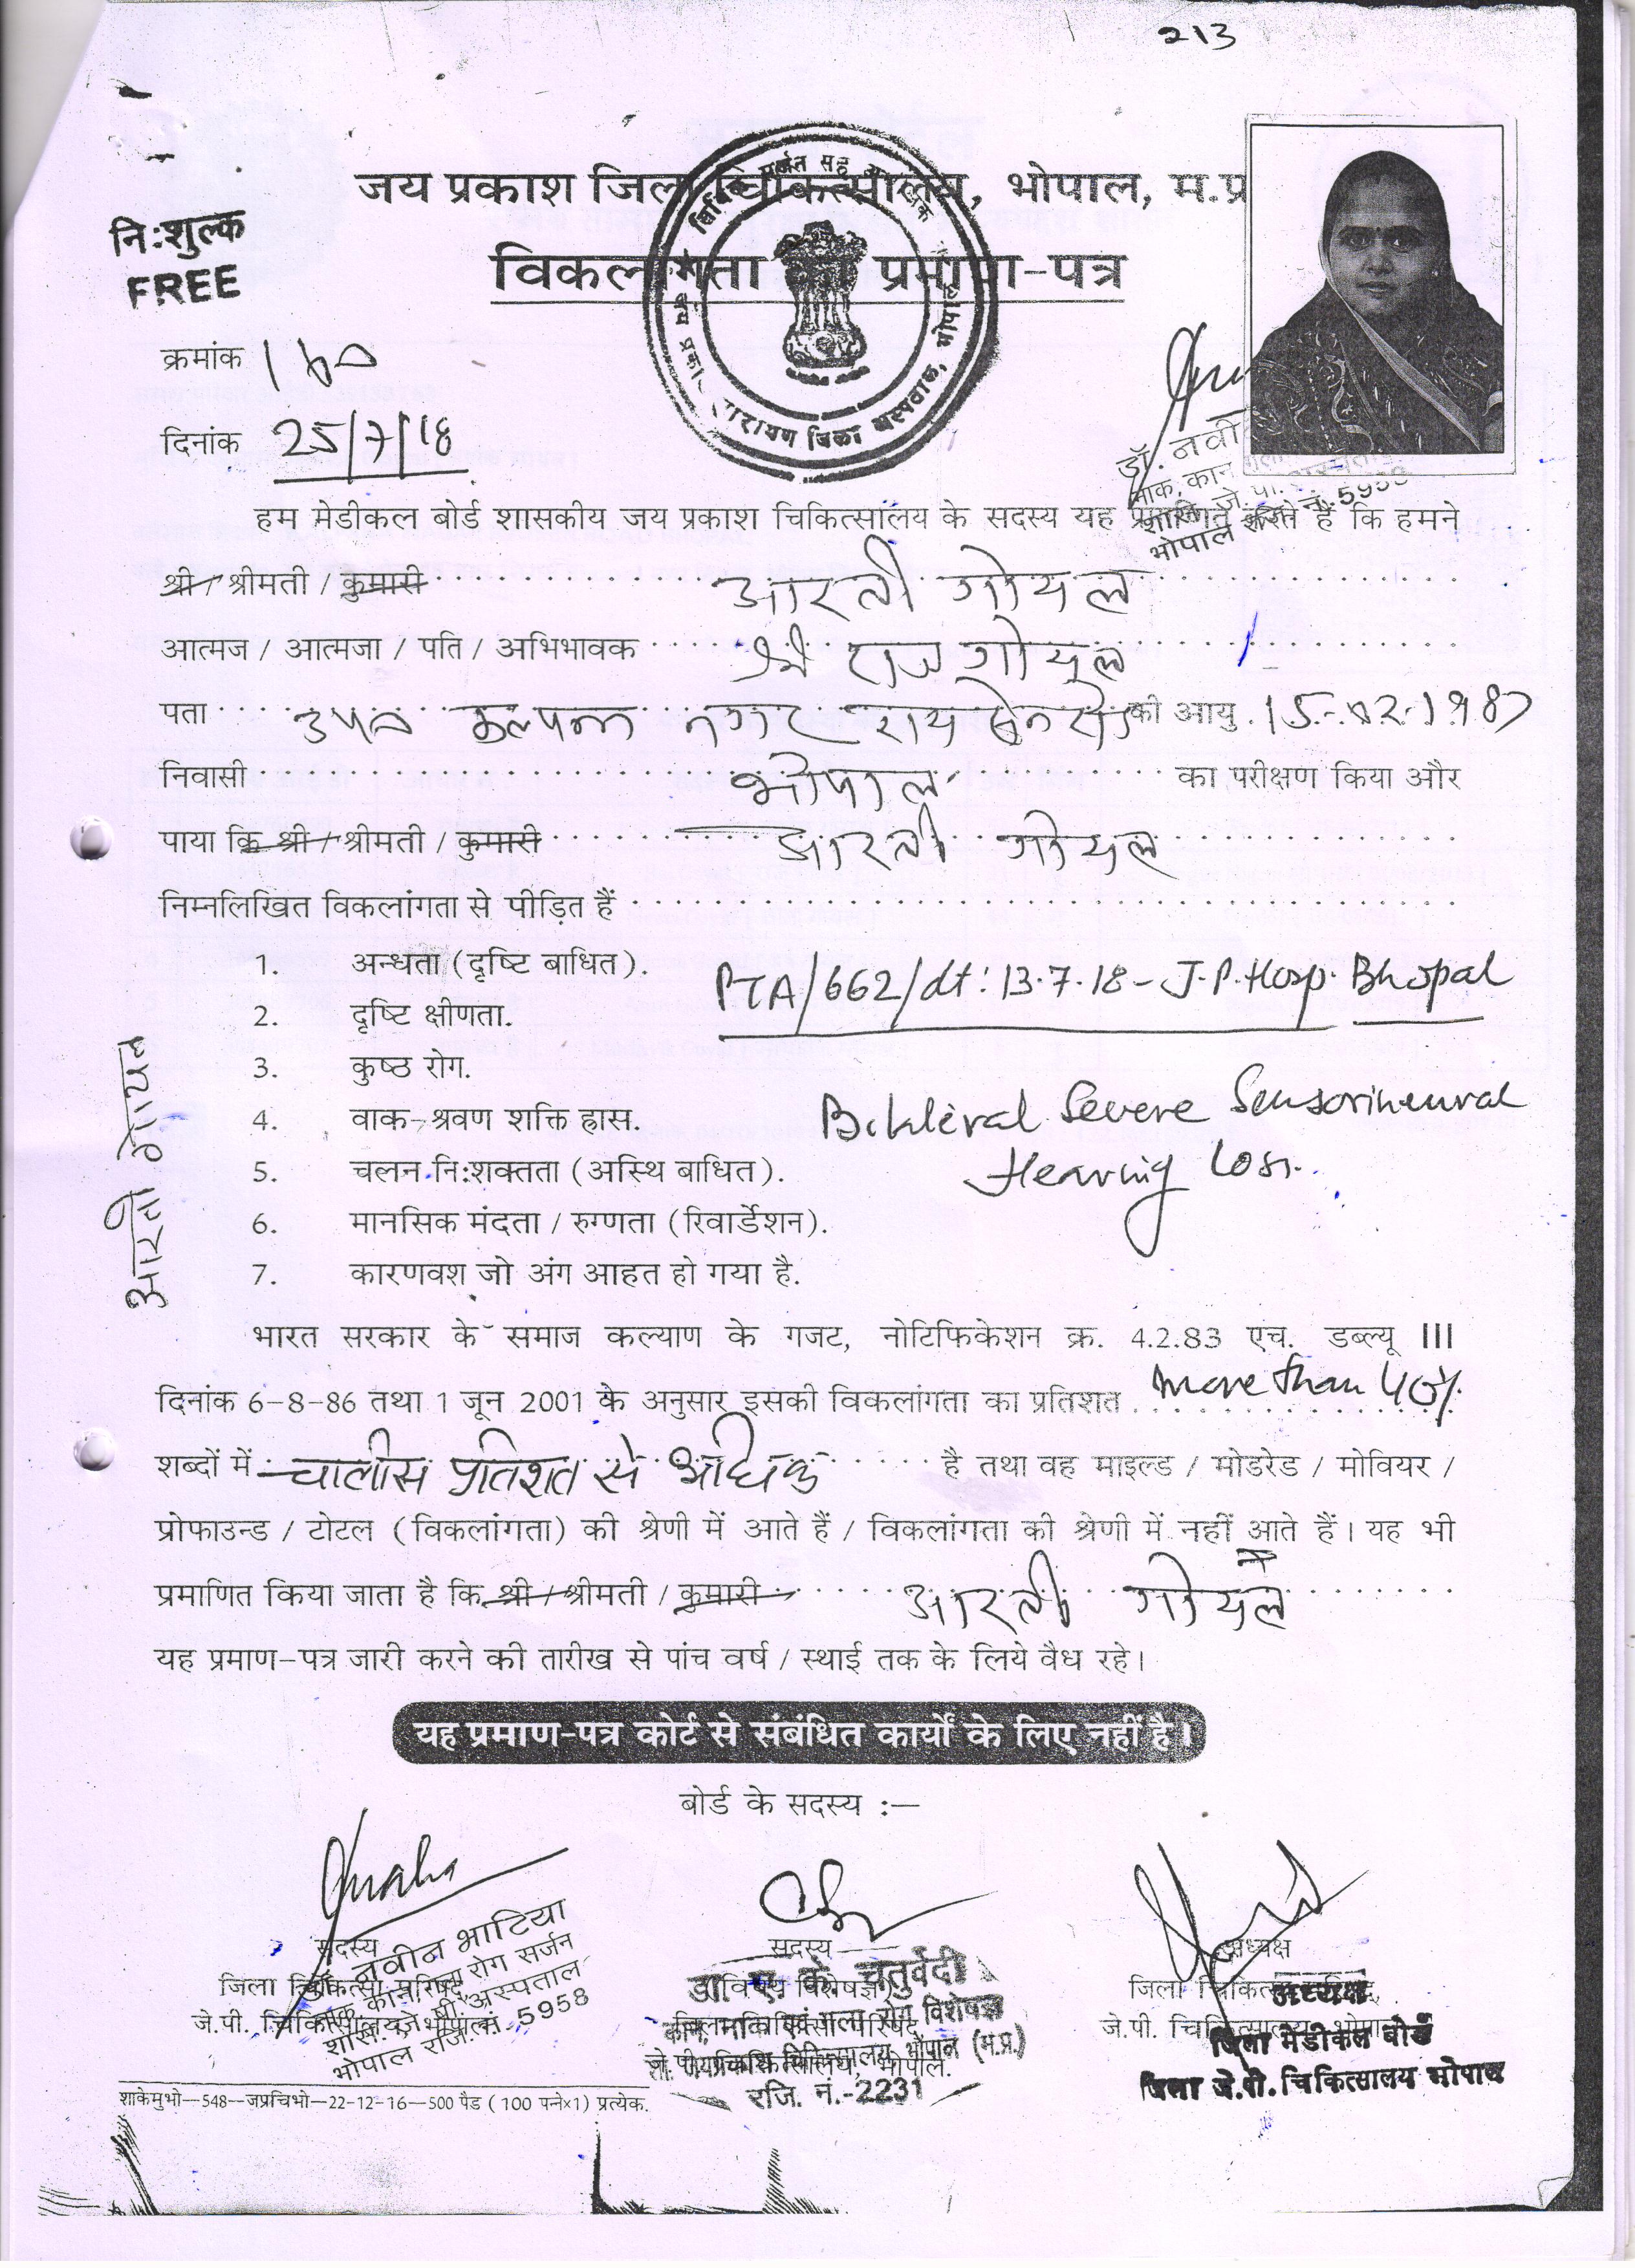 213
जय प्रकाश जिला चिकित्सालय, भोपाल, म.प्र
विकलांगता का प्रमाण-पत्र
नि:शुल्क
FREE
क्रमांक
दिनांक 25/7/18
डॉ. नवी
नाक, कान
शास. जे. पी. नं. 5958
भोपाल
हम मेडीकल बोर्ड शासकीय जय प्रकाश चिकित्सालय के सदस्य यह प्रमाणित करते हैं कि हमने
श्री / श्रीमती / कुमारी आरती गोयल
आत्मज / आत्मजा / पति / अभिभावक श्री राज गोयल
पता कल्पना नगर राय सेन रोड की आयु 15-02-1987
निवासी भोपाल का परीक्षण किया और
पाया कि श्री / श्रीमती / कुमारी आरती गोयल
निम्नलिखित विकलांगता से पीड़ित हैं
1. अन्धता (दृष्टि बाधित).
PTA/662/dt: 13.7.18 - J.P. Hosp. Bhopal
2. दृष्टि क्षीणता.
3. कुष्ठ रोग.
4. वाक-श्रवण शक्ति ह्रास. Bilateral Severe Sensorineural
Hearing Loss.
5. चलन नि:शक्तता (अस्थि बाधित).
6. मानसिक मंदता / रुग्णता (रिवार्डेशन).
7. कारणवश जो अंग आहत हो गया है.
आरती गोयल
भारत सरकार के समाज कल्याण के गजट, नोटिफिकेशन क्र. 4.2.83 एच. डब्ल्यू III
दिनांक 6-8-86 तथा 1 जून 2001 के अनुसार इसकी विकलांगता का प्रतिशत more than 40%
शब्दों में चालीस प्रतिशत से अधिक है तथा वह माइल्ड / मोडरेड / मोवियर /
प्रोफाउन्ड / टोटल (विकलांगता) की श्रेणी में आते हैं / विकलांगता की श्रेणी में नहीं आते हैं। यह भी
प्रमाणित किया जाता है कि श्री / श्रीमती / कुमारी आरती गोयल
यह प्रमाण-पत्र जारी करने की तारीख से पांच वर्ष / स्थाई तक के लिये वैध रहे।
यह प्रमाण-पत्र कोर्ट से संबंधित कार्यों के लिए नहीं है।
बोर्ड के सदस्य :—
सदस्य
डॉ. नवीन भाटिया
नाक कान गला रोग सर्जन
शास. जे. पी. अस्पताल
भोपाल रजि. नं. 5958
जिला चिकित्सा परिषद्
जे.पी. चिकित्सालय, भोपाल.
सदस्य
डा. ए. के. चतुर्वेदी
विषय विशेषज्ञ
कान, नाक एवं गला रोग विशेषज्ञ
जिला चिकित्सा परिषद्
जे.पी. चिकित्सालय, भोपाल.
रजि. नं.-2231
अध्यक्ष
जिला चिकित्सा परिषद्
जे.पी. चिकित्सालय, भोपाल
अध्यक्ष
जिला मेडीकल बोर्ड
जिला जे.पी. चिकित्सालय भोपाल
शाकेमुभो—548—जप्रचिभो—22-12-16—500 पैड (100 पन्ने×1) प्रत्येक.